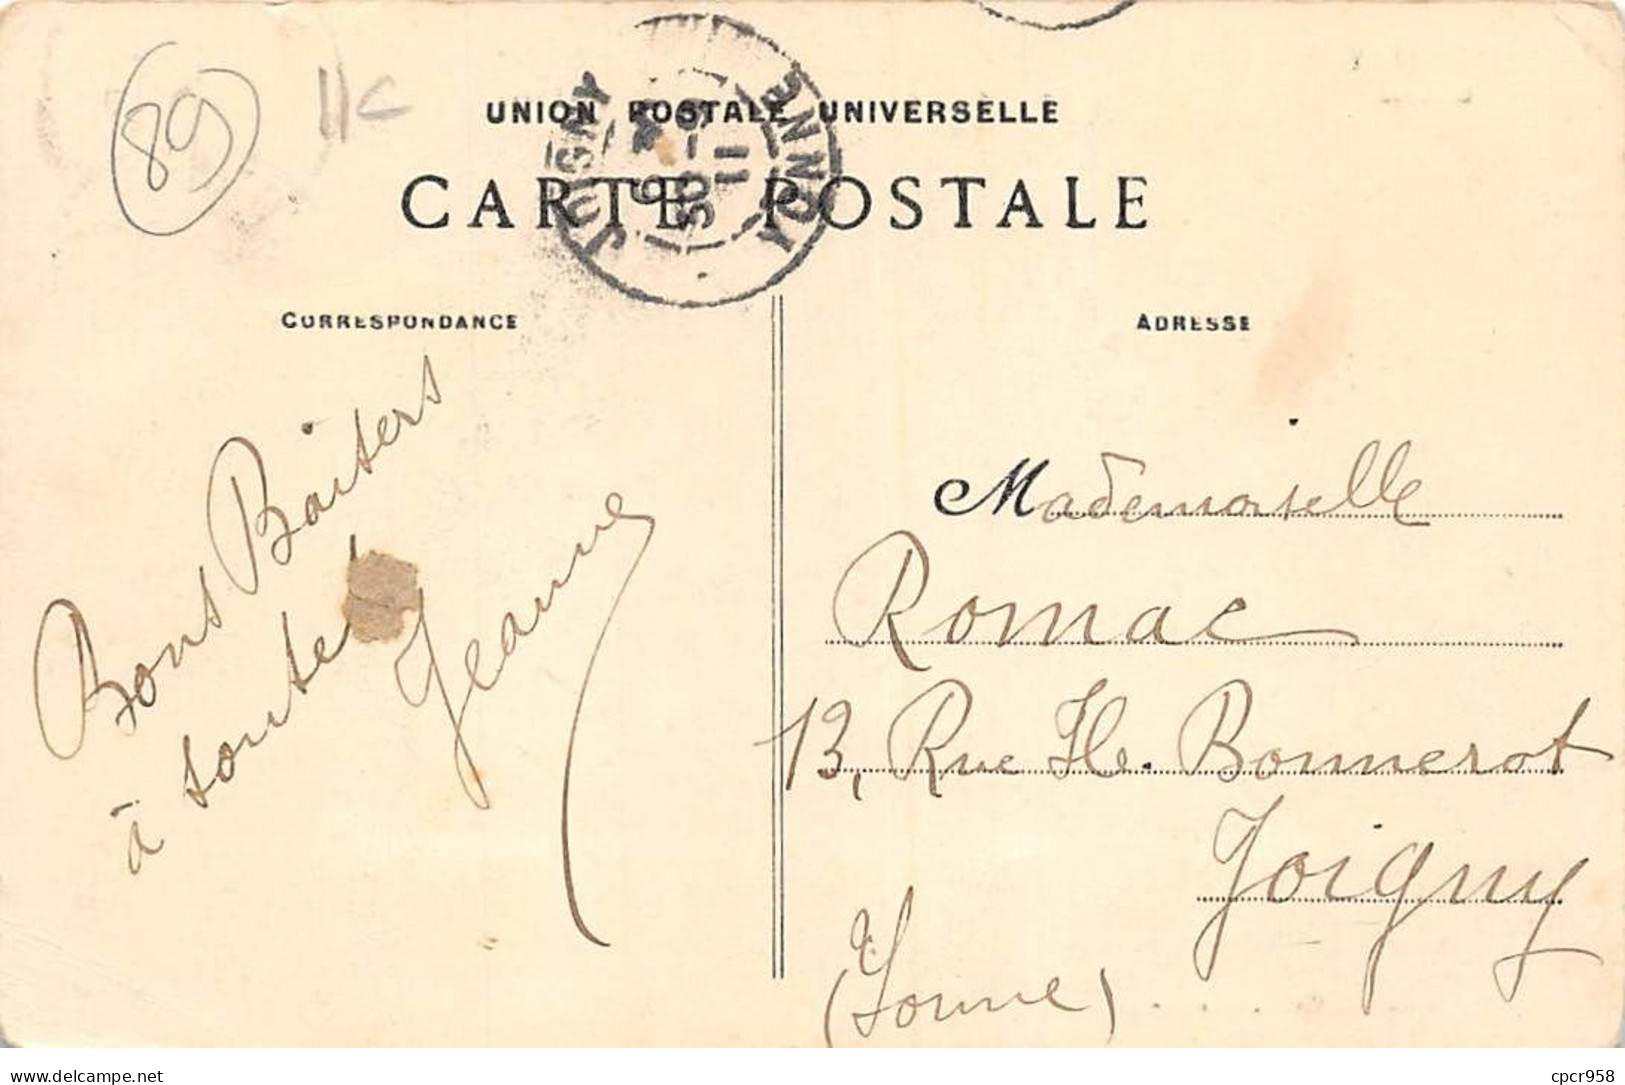 89
11c
UNION POSTALE UNIVERSELLE
CARTE POSTALE
JOIGNY
YONNE
11
CORRESPONDANCE
ADRESSE
Bons Baisers
à toutes
Jeanne
Mademoiselle
Romac
13, Rue He. Bonnerot
Joigny
(Yonne)
www.delcampe.net
cpcr958